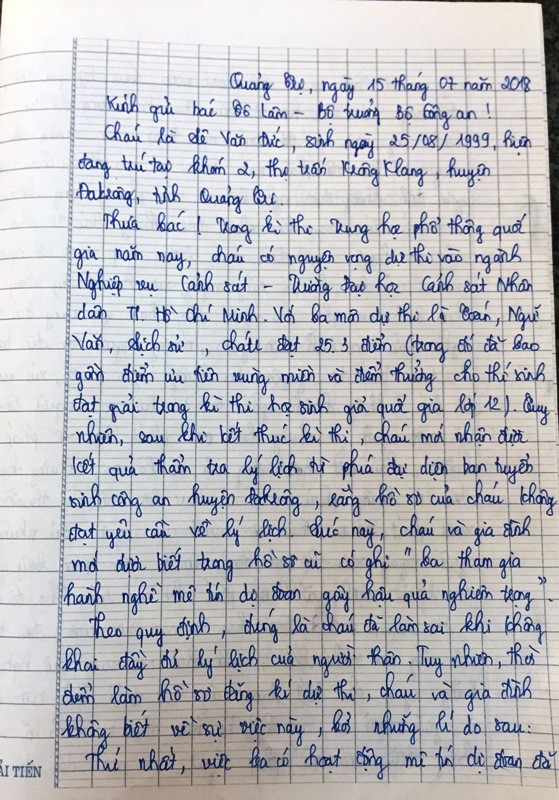 Quảng Trị, ngày 15 tháng 07 năm 2018
Kính gửi bác Tô Lâm – Bộ trưởng Bộ Công an !
Cháu là Lê Văn Đức, sinh ngày 25/08/1999, hiện
đang trú tại khóm 2, thị trấn Krông Klang, huyện
Đakrông, tỉnh Quảng Trị.
Thưa bác ! Trong kì thi Trung học phổ thông quốc
gia năm nay, cháu có nguyện vọng dự thi vào ngành
Nghiệp vụ Cảnh sát – Trường Đại học Cảnh sát Nhân
dân TP. Hồ Chí Minh. Với ba môn dự thi là Toán, Ngữ
Văn, Lịch sử, cháu đạt 25.3 điểm (trong đó đã bao
gồm điểm ưu tiên vùng miền và điểm thưởng cho thí sinh
đạt giải trong kì thi học sinh giỏi quốc gia lớp 12). Tuy
nhiên, sau khi kết thúc kì thi, cháu mới nhận được
kết quả thẩm tra lý lịch từ phía đại diện ban tuyển
sinh công an huyện Đakrông, rằng hồ sơ của cháu không
đạt yêu cầu về lý lịch. Lúc này, cháu và gia đình
mới được biết trong hồ sơ cũ có ghi " ba tham gia
hành nghề mê tín dị đoan gây hậu quả nghiêm trọng".
Theo quy định, đúng là cháu đã làm sai khi không
khai đầy đủ lý lịch của người thân. Tuy nhiên, thời
điểm làm hồ sơ đăng kí dự thi, cháu và gia đình
không biết về sự việc này, bởi những lí do sau:
Thứ nhất, việc ba có hoạt động mê tín dị đoan đã
ẢI TIẾN